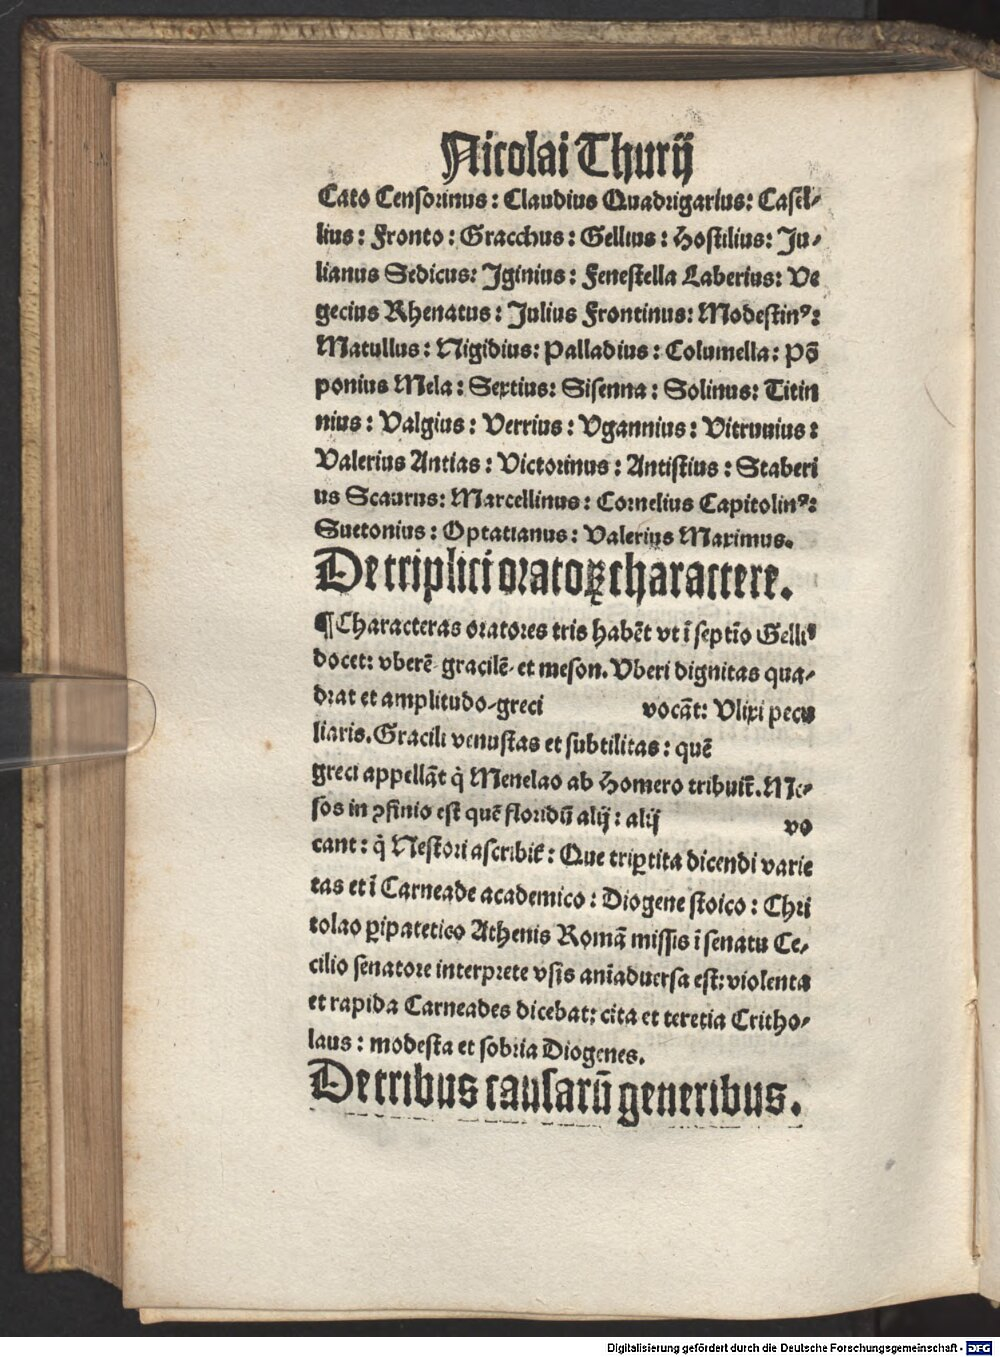 Nicolai Thurij
Cato Censorinus: Claudius Quadrigarius: Casel-
lius: Fronto: Gracchus: Gellius: Hostilius: Ju-
lianus Sedicus: Iginius: Fenestella Laberius: Ve
gecius Rhenatus: Julius Frontinus: Modestinꝰ:
Matullus: Nigidius: Palladius: Columella: Põ
ponius Mela: Sextius: Sisenna: Solinus: Titin
nius: Valgius: Verrius: Vgannius: Vitruuius:
Valerius Antias: Victorinus: Antistius: Staberi
us Scaurus: Marcellinus: Cornelius Capitolinꝰ:
Suetonius: Optatianus: Valerius Maximus.
De triplici oratoꝝ charactere.
¶Characteras oratores tris habẽt vt ĩ septĩo Gelliꝰ
docet: vberẽ gracilẽ et meson. Vberi dignitas qua-
drat et amplitudo-greci vocãt: Vlixi pecu
liaris. Gracili venustas et subtilitas: quẽ
greci appellãt q̃ Menelao ab Homero tribuit̃. Me-
sos in ꝯfinio est quẽ floridũ alij: alij vo
cant: q̃ Nestori ascribit̃: Que tripꝑtita dicendi varie
tas et ĩ Carneade academico: Diogene stoico: Chri
tolao ꝑipatetico Athenis Romã missis ĩ senatu Ce-
cilio senatore interprete vsis anĩaduersa est: violenta
et rapida Carneades dicebat: cita et teretia Critho-
laus: modesta et sobria Diogenes.
De tribus causarũ generibus.
Digitalisierung gefördert durch die Deutsche Forschungsgemeinschaft - DFG